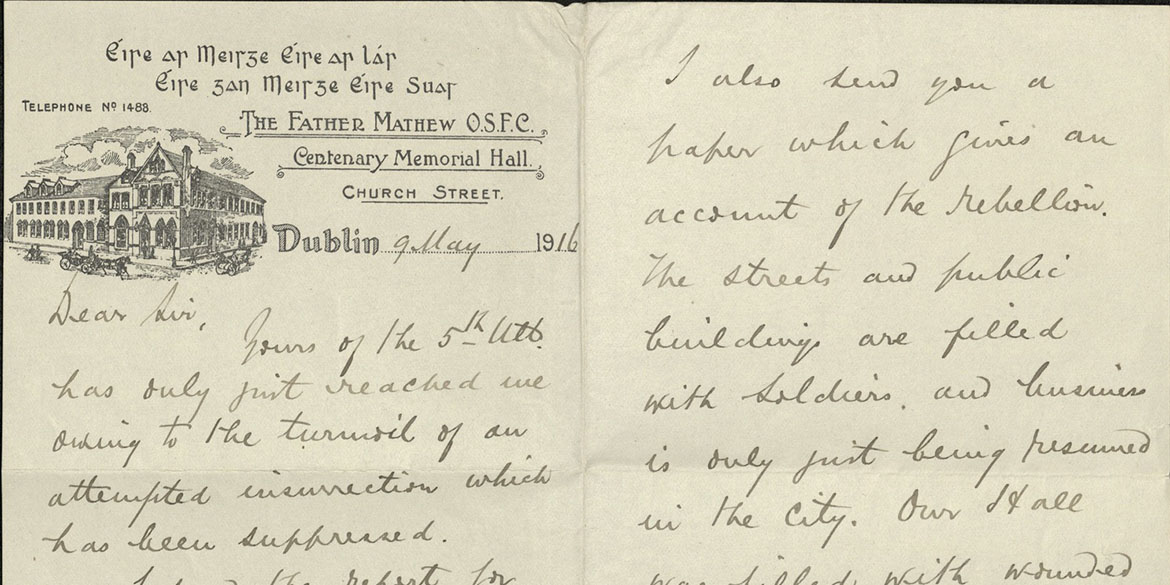 Éire ar Meisge Éire ar lár
Éire gan Meisge Éire Suas
TELEPHONE Nº 1488.
THE FATHER MATHEW O.S.F.C.
Centenary Memorial Hall.
CHURCH STREET.
Dublin 9 May 1916
Dear Sir,
Yours of the 5th Ult.
has only just reached me
owing to the turmoil of an
attempted insurrection which
has been suppressed.
I the report for
I also send you a
paper which gives an
account of the rebellion.
The streets and public
buildings are filled
with soldiers. and business
is only just being resumed
in the city. Our Hall
was filled with wounded